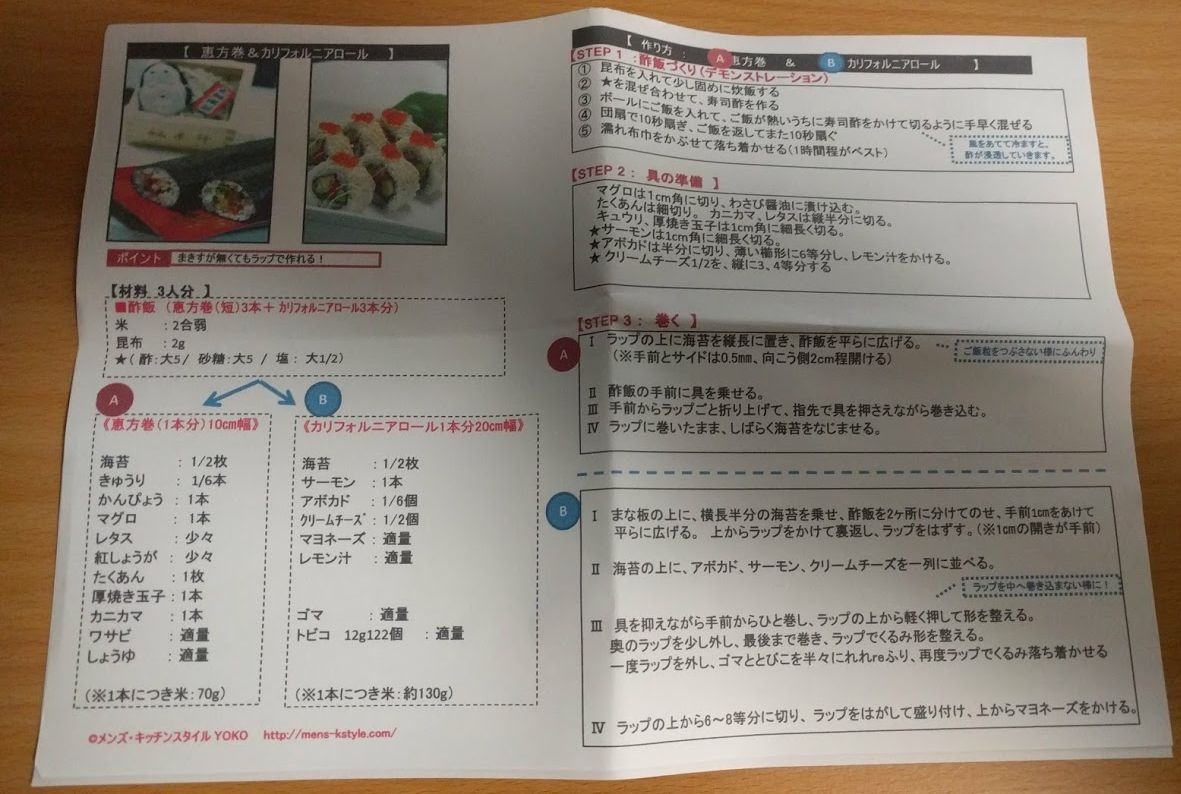 【 恵方巻＆カリフォルニアロール 】
ポイント まきすが無くてもラップで作れる！
【材料 3人分 】
■酢飯 （恵方巻（短）3本＋ カリフォルニアロール3本分）
米 ：2合弱
昆布 ：2g
★（ 酢：大5/ 砂糖：大5 / 塩： 大1/2）
A
B
《恵方巻（1本分）10cm幅》
海苔 ： 1/2枚
きゅうり ： 1/6本
かんぴょう ： 1本
マグロ ： 1本
レタス ： 少々
紅しょうが ： 少々
たくあん ： 1枚
厚焼き玉子 ： 1本
カニカマ ： 1本
ワサビ ： 適量
しょうゆ ： 適量
（※1本につき米：70g）
《カリフォルニアロール1本分20cm幅》
海苔 ：1/2枚
サーモン ：1本
アボカド ：1/6個
クリームチーズ ：1/2個
マヨネーズ ：適量
レモン汁 ：適量
ゴマ ：適量
トビコ 12g122個 ：適量
（※1本につき米：約130g）
©メンズ・キッチンスタイル YOKO http://mens-kstyle.com/
【 作り方 ： A 恵方巻 ＆ B カリフォルニアロール 】
【STEP 1 ：酢飯づくり（デモンストレーション）
① 昆布を入れて少し固めに炊飯する
② ★を混ぜ合わせて、寿司酢を作る
③ ボールにご飯を入れて、ご飯が熱いうちに寿司酢をかけて切るように手早く混ぜる
④ 団扇で10秒扇ぎ、ご飯を返してまた10秒扇ぐ
⑤ 濡れ布巾をかぶせて落ち着かせる（1時間程がベスト）
風をあてて冷ますと、
酢が浸透していきます。
【STEP 2： 具の準備 】
マグロは1cm角に切り、わさび醤油に漬け込む。
たくあんは細切り。 カニカマ、レタスは縦半分に切る。
キュウリ、厚焼き玉子は1cm角に細長く切る。
★サーモンは1cm角に細長く切る。
★アボカドは半分に切り、薄い櫛形に6等分し、レモン汁をかける。
★クリームチーズ1/2を、縦に3、4等分する
【STEP 3： 巻く 】
A
Ⅰ ラップの上に海苔を縦長に置き、酢飯を平らに広げる。
（※手前とサイドは0.5mm、向こう側2cm程開ける）
ご飯粒をつぶさない様にふんわり
Ⅱ 酢飯の手前に具を乗せる。
Ⅲ 手前からラップごと折り上げて、指先で具を押さえながら巻き込む。
Ⅳ ラップに巻いたまま、しばらく海苔をなじませる。
B
Ⅰ まな板の上に、横長半分の海苔を乗せ、酢飯を2ヶ所に分けてのせ、手前1cmをあけて
平らに広げる。 上からラップをかけて裏返し、ラップをはずす。（※1cmの開きが手前）
Ⅱ 海苔の上に、アボカド、サーモン、クリームチーズを一列に並べる。
ラップを中へ巻き込まない様に！
Ⅲ 具を抑えながら手前からひと巻し、ラップの上から軽く押して形を整える。
奥のラップを少し外し、最後まで巻き、ラップでくるみ形を整える。
一度ラップを外し、ゴマととびこを半々にれれreふり、再度ラップでくるみ落ち着かせる
Ⅳ ラップの上から6～8等分に切り、ラップをはがして盛り付け、上からマヨネーズをかける。